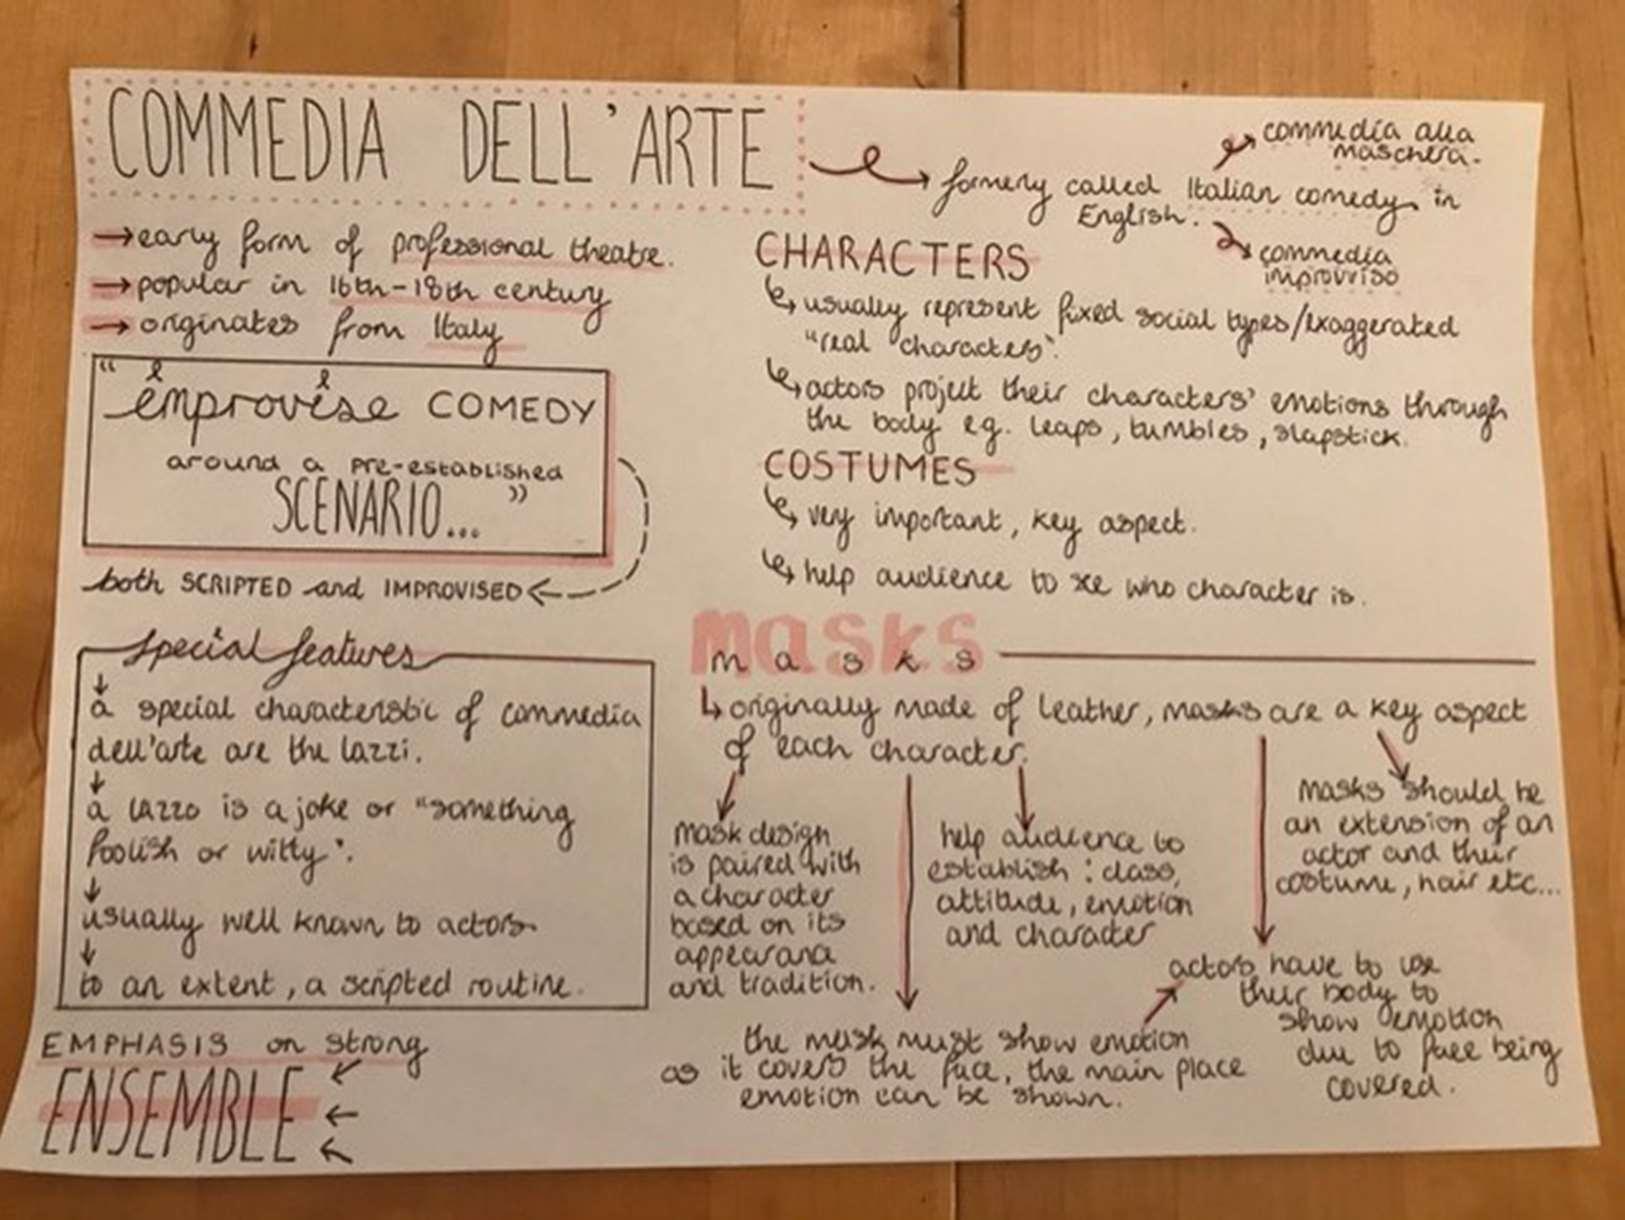 COMMEDIA DELL'ARTE
formerly called Italian comedy in
English.
commedia alla
maschera.
commedia
improvviso
→early form of professional theatre.
→popular in 16th-18th century
→originates from Italy
"improvise COMEDY
around a pre-established
SCENARIO..."
both SCRIPTED and IMPROVISED
special features
a special characteristic of commedia
dell'arte are the lazzi.
a lazzo is a joke or "something
foolish or witty".
usually well known to actors.
to an extent, a scripted routine.
EMPHASIS on strong
ENSEMBLE
CHARACTERS
usually represent fixed social types/exaggerated
"real characters".
actors project their characters' emotions through
the body e.g. leaps, tumbles, slapstick.
COSTUMES
very important, key aspect.
help audience to see who character is.
masks
masks
originally made of leather, masks are a key aspect
of each character.
mask design
is paired with
a character
based on its
appearance
and tradition.
the mask must show emotion
as it covers the face, the main place
emotion can be shown.
help audience to
establish: class,
attitude, emotion
and character
actors have to use
their body to
show emotion
due to face being
covered.
masks should be
an extension of an
actor and their
costume, hair etc...